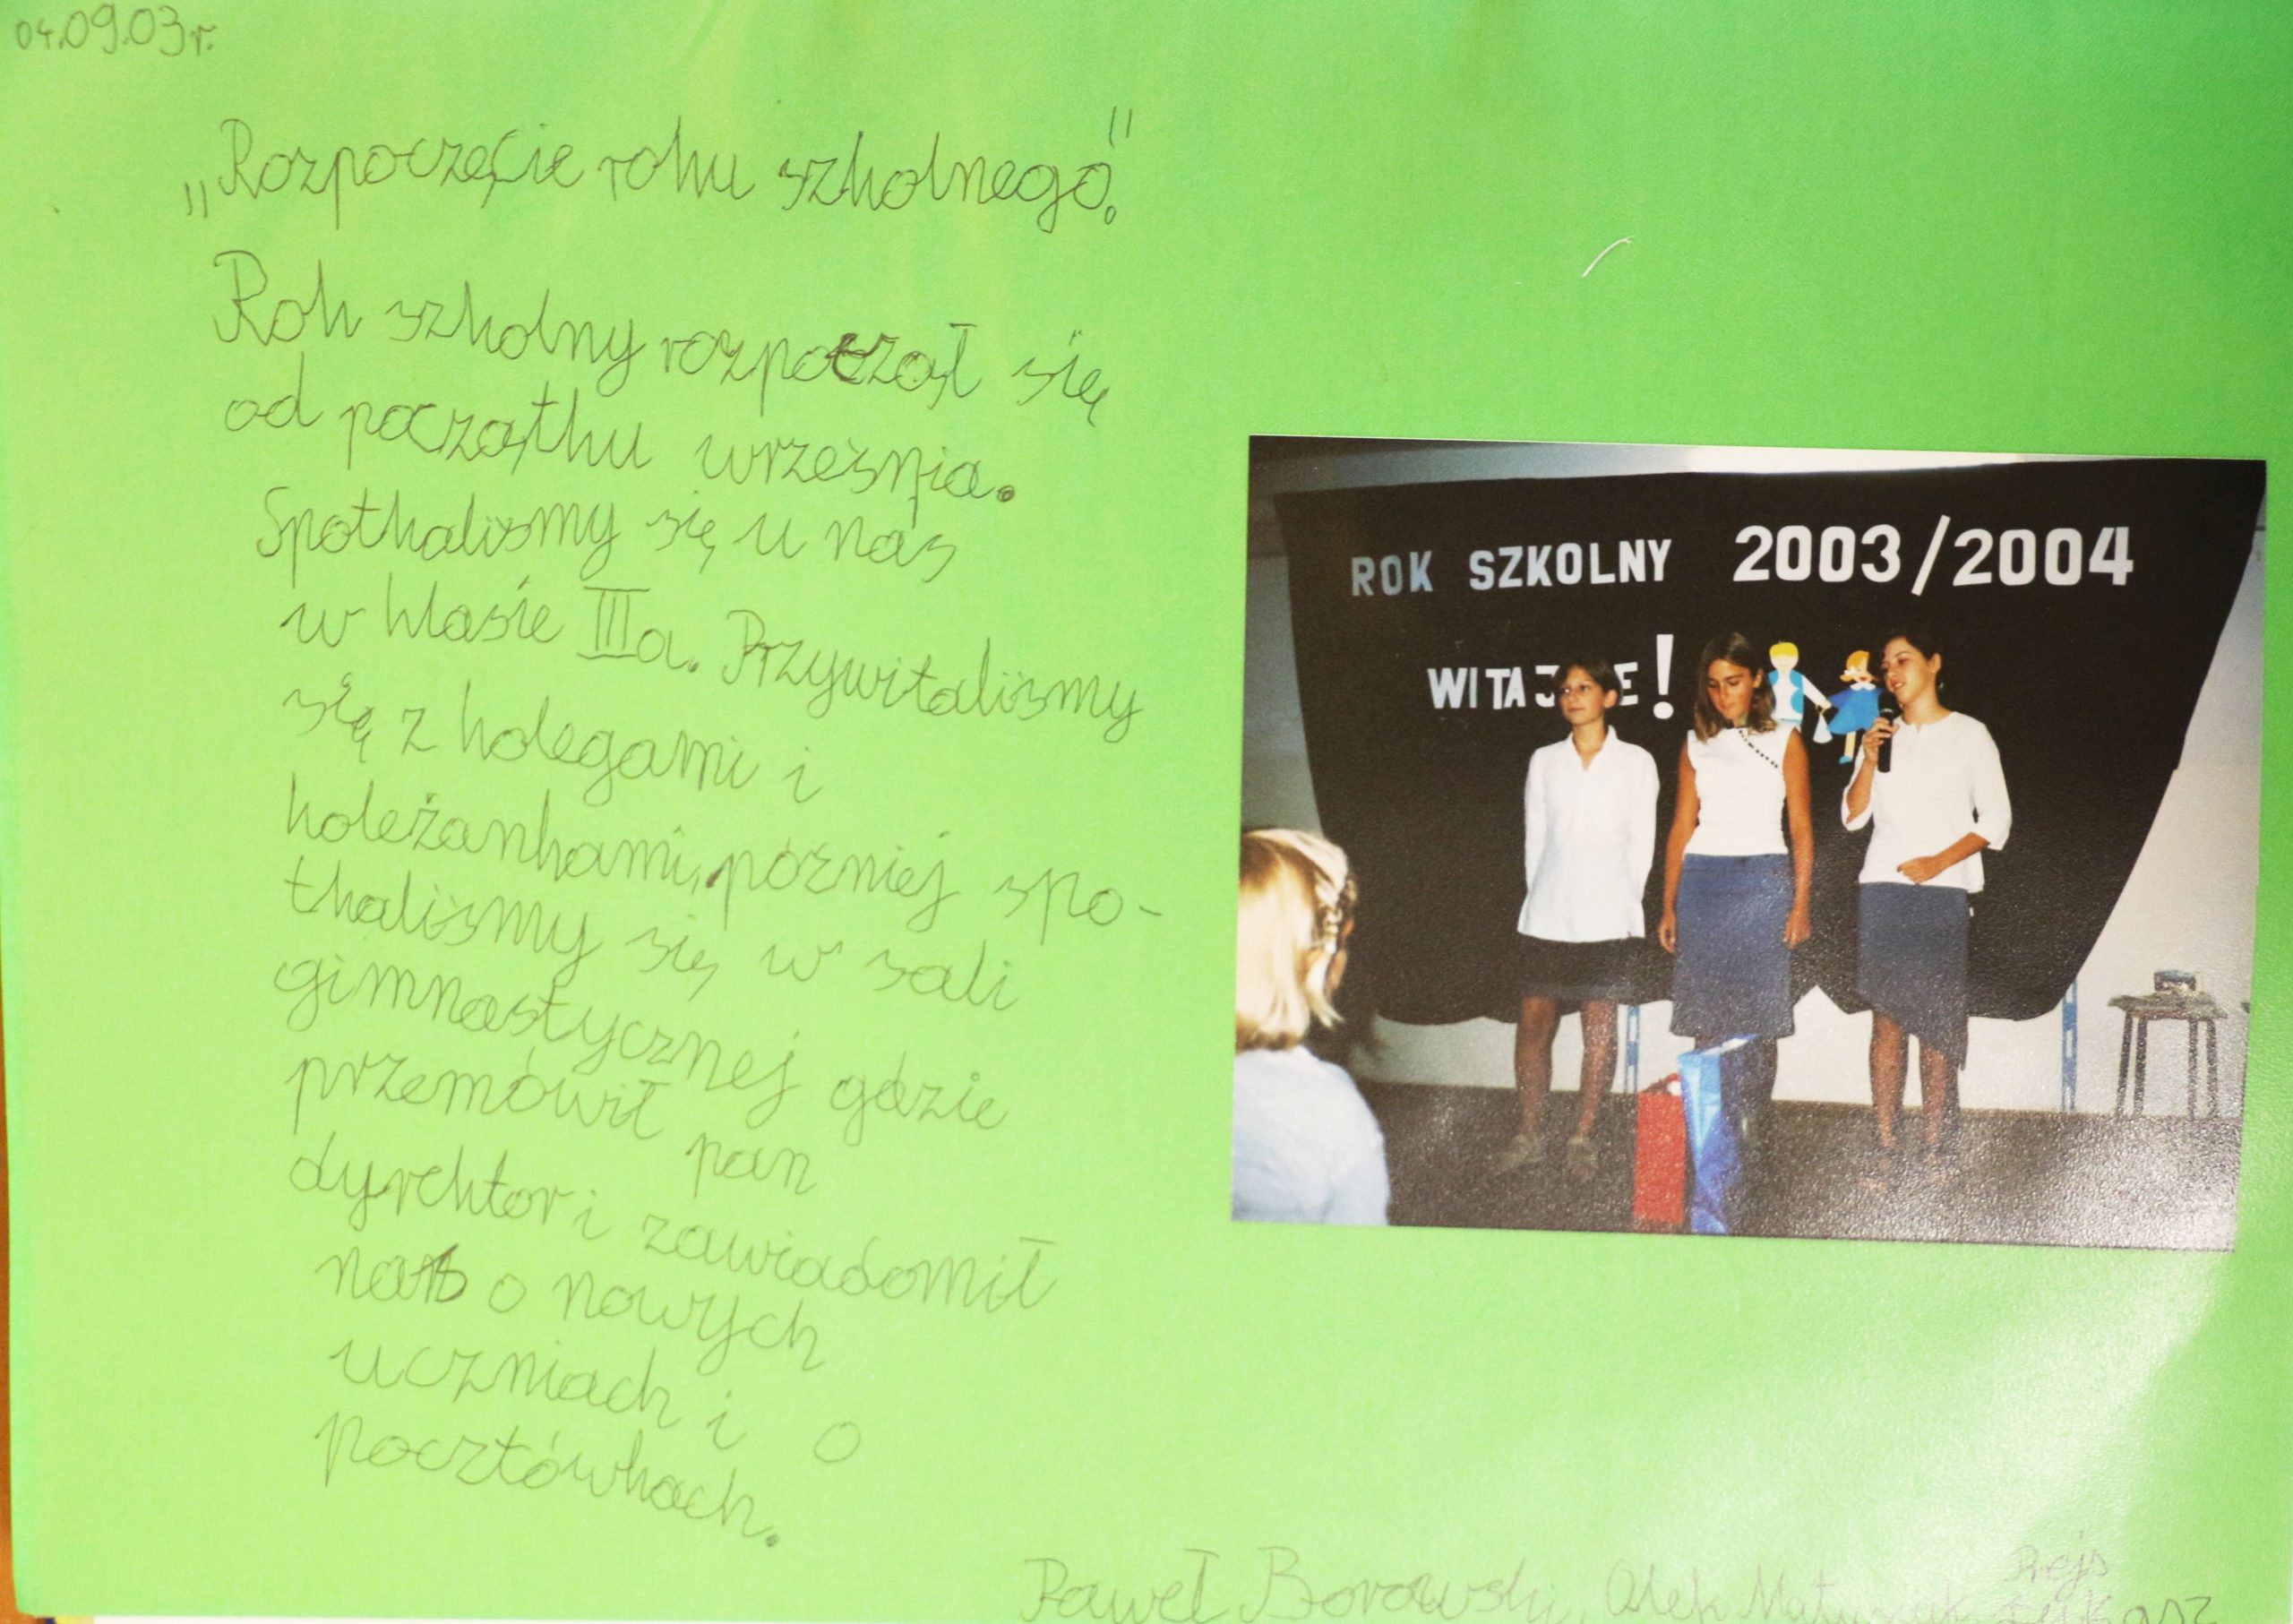 04.09.03r.
„Rozpoczęcie roku szkolnego."
Rok szkolny rozpoczął się
od początku września.
Spotkaliśmy się u nas
w klasie IIIa. Przywitaliśmy
się z kolegami i
koleżankami, później spo-
tkaliśmy się w sali
gimnastycznej gdzie
przemówił pan
dyrektor i zawiadomił
nas o nowych
uczniach i o
pocztówkach.
ROK SZKOLNY 2003/2004
WITAJ E!
Paweł Borowski, Olek